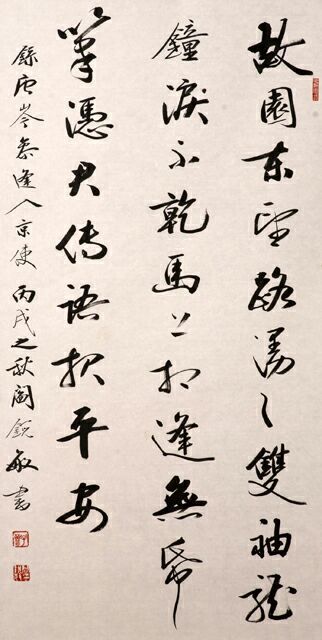 故園東望路漫々雙袖龍
鐘淚不乾馬上相逢無帋
筆憑君傳語報平安
錄唐岑參逢入京使 丙戌之秋 閻銳敏書